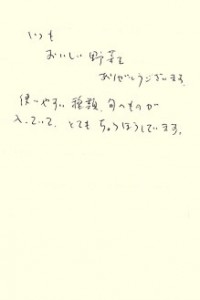 いつも
おいしい野菜を
ありがとうございます。
使いやすい種類、旬のものが
入っていて、とてもちょうほうしています。